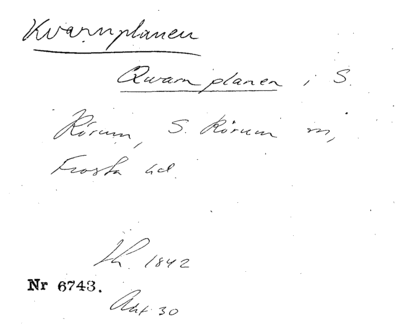 Kvarnplanen
Qwarn planen i S.
Rörum, S. Rörum sn,
Frosta hd.
Lh. 1842
Nr 6743.
Akt 30